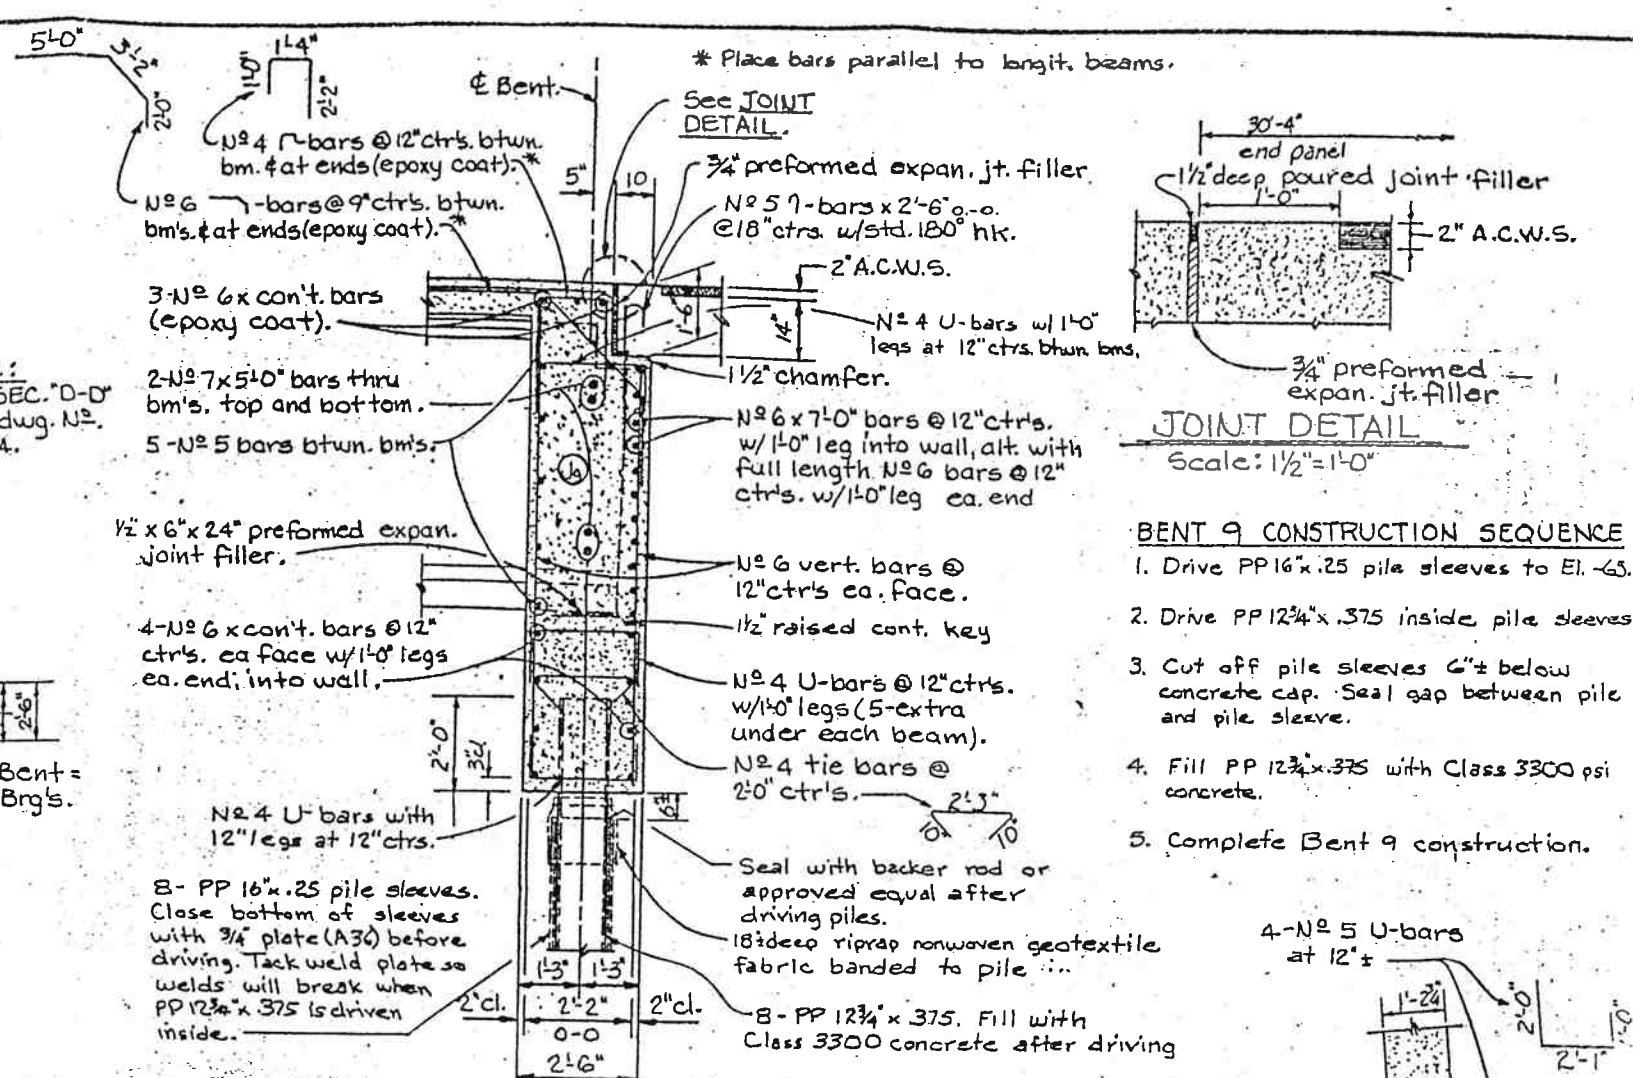 5'-0"
3'-2"
2'-0"
1'-4"
1'-0"
2'-2"
* Place bars parallel to longit. beams.
℄ Bent.
See JOINT
DETAIL.
Nº 4 ⌈-bars @ 12" ctr's. btwn.
bm. & at ends (epoxy coat).*
Nº 6 -bars @ 9" ctr's. btwn.
bm's. & at ends (epoxy coat).*
5"
10
3/4" preformed expan. jt. filler
Nº 5 ⌉-bars x 2'-6" o.-o.
@ 18" ctrs. w/std. 180° hk.
2" A.C.W.S.
3-Nº 6 x con't. bars
(epoxy coat).
1'-6"
14"
Nº 4 U-bars w/ 1'-0"
legs at 12" ctrs. btwn bms.
1 1/2" chamfer.
SEC. "D-D"
dwg. Nº.
4.
2-Nº 7 x 5'-0" bars thru
bm's. top and bottom.
5-Nº 5 bars btwn. bm's.
Nº 6 x 7'-0" bars @ 12" ctr's.
w/ 1'-0" leg into wall, alt. with
full length Nº 6 bars @ 12"
ctr's. w/1'-0" leg ea. end
1/2" x 6" x 24" preformed expan.
joint filler.
Nº 6 vert. bars @
12" ctr's ea. face.
1 1/2" raised cont. key
4-Nº 6 x con't. bars @ 12"
ctr's. ea face w/1'-0" legs
ea. end, into wall.
Nº 4 U-bars @ 12" ctrs.
w/1'-0" legs (5-extra
under each beam).
2'-6"
2'-0"
3"cl
Bent =
Brg's.
Nº 4 tie bars @
2'-0" ctr's.
2'-3"
10"
10"
6"±
Nº 4 U-bars with
12" legs at 12" ctrs.
Seal with backer rod or
approved equal after
driving piles.
8- PP 16" x .25 pile sleeves.
Close bottom of sleeves
with 3/4" plate (A36) before
driving. Tack weld plate so
welds will break when
PP 12 3/4" x .375 is driven
inside.
18"± deep riprap nonwoven geotextile
fabric banded to pile
1'-3"
1'-3"
2"cl.
2'-2"
2"cl.
0-0
2'-6"
8- PP 12 3/4" x .375. Fill with
Class 3300 concrete after driving
30'-4"
end panel
1 1/2" deep poured joint filler
1'-0"
2" A.C.W.S.
3/4" preformed
expan. jt. filler
JOINT DETAIL
Scale: 1 1/2" = 1'-0"
BENT 9 CONSTRUCTION SEQUENCE
1. Drive PP 16" x .25 pile sleeves to El. -65.
2. Drive PP 12 3/4" x .375 inside pile sleeves
3. Cut off pile sleeves 6"± below
concrete cap. Seal gap between pile
and pile sleeve.
4. Fill PP 12 3/4" x .375 with Class 3300 psi
concrete.
5. Complete Bent 9 construction.
4-Nº 5 U-bars
at 12"±
2'-0"
1'-0"
2'-1"